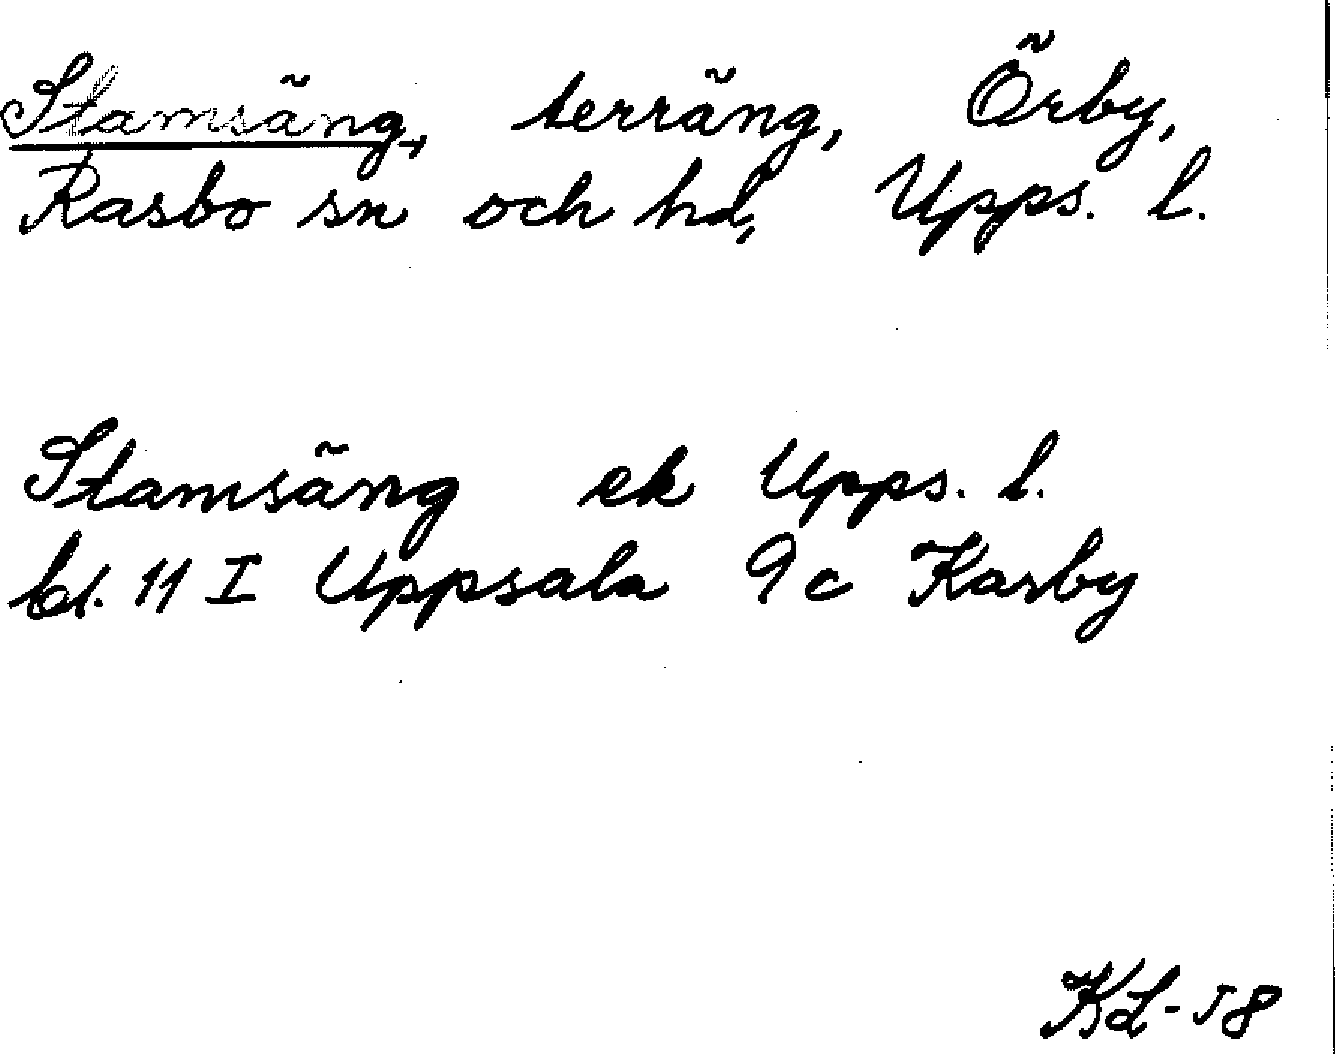 Stamsäng, terräng, Örby,
Rasbo sn och hd, Upps. l.
Stamsäng ek Upps. l.
bl. 11 I Uppsala 9c Karby
KL-58